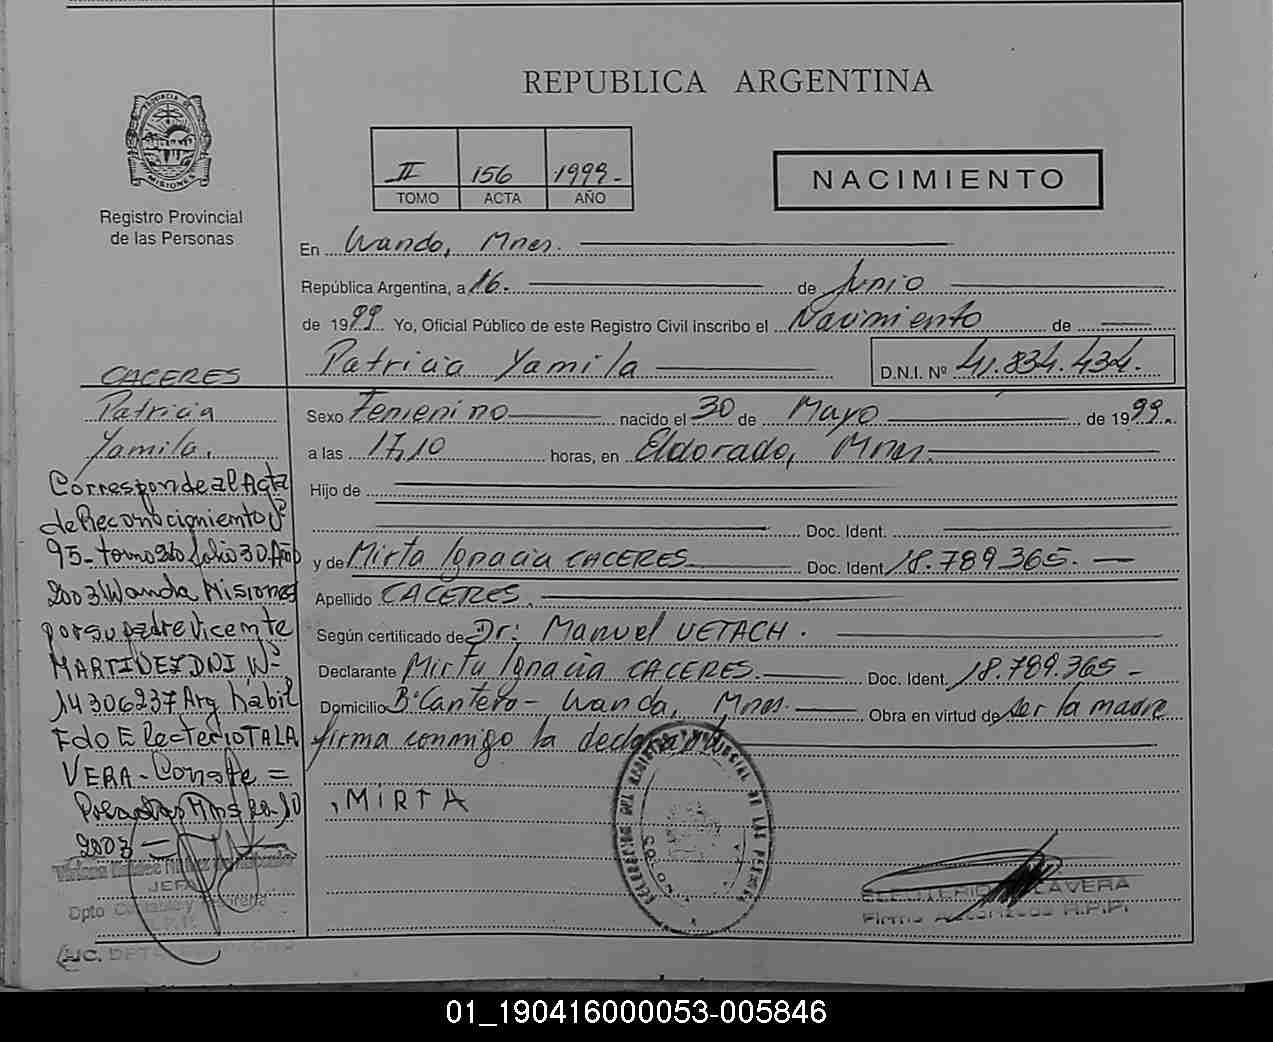 REPUBLICA ARGENTINA
PROVINCIA DE MISIONES
Registro Provincial
de las Personas
II 156 1999.-
TOMO ACTA AÑO
NACIMIENTO
En Wanda, Mnes.
República Argentina, a 16. de Junio
de 1999 Yo, Oficial Público de este Registro Civil inscribo el Nacimiento de
Patricia Yamila D.N.I. Nº 41.834.434.
Sexo Femenino nacido el 30 de Mayo de 1999.
a las 17,10 horas, en Eldorado, Mnes.
Hijo de
Doc. Ident.
y de Mirta Ignacia CACERES Doc. Ident. 18.789.365.
Apellido CACERES.
Según certificado de Dr: Manuel UETACH.
Declarante Mirta Ignacia CACERES. Doc. Ident. 18.789.365 -
Domicilio Bº Cantero - Wanda, Mnes. Obra en virtud de ser la madre
firma conmigo la declarante
MIRTA
ELEUTERIO TALAVERA
Firma Autorizada R.P.P.
CACERES
Patricia
Yamila.
Corresponde al Acta
de Reconocimiento Nº
95- tomo 2do folio 30 Año
2003 Wanda Misiones
por su padre Vicente
MARTINEZ DNI Nº
14306237 Arg hábil
Fdo Electerio TALA
VERA - Conste =
Posadas Mnes 20, 10
2003 -
JEFA
Dpto
01_190416000053-005846